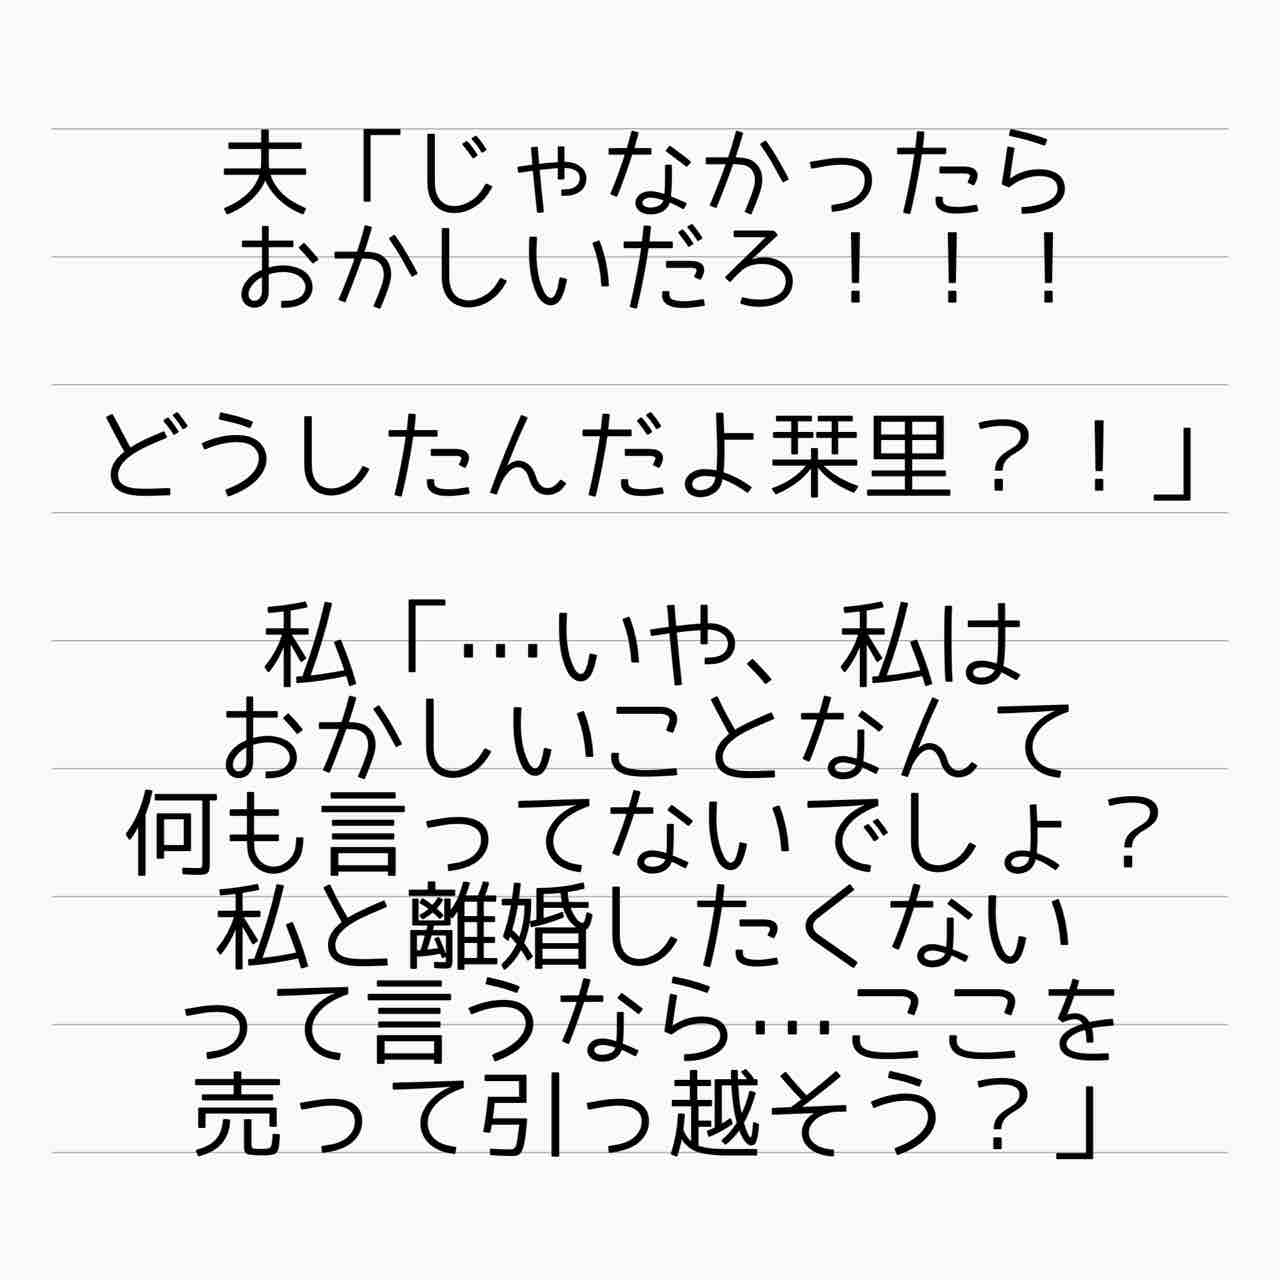 夫「じゃなかったら
おかしいだろ！！！
どうしたんだよ栞里？！」
私「…いや、私は
おかしいことなんて
何も言ってないでしょ？
私と離婚したくない
って言うなら…ここを
売って引っ越そう？」